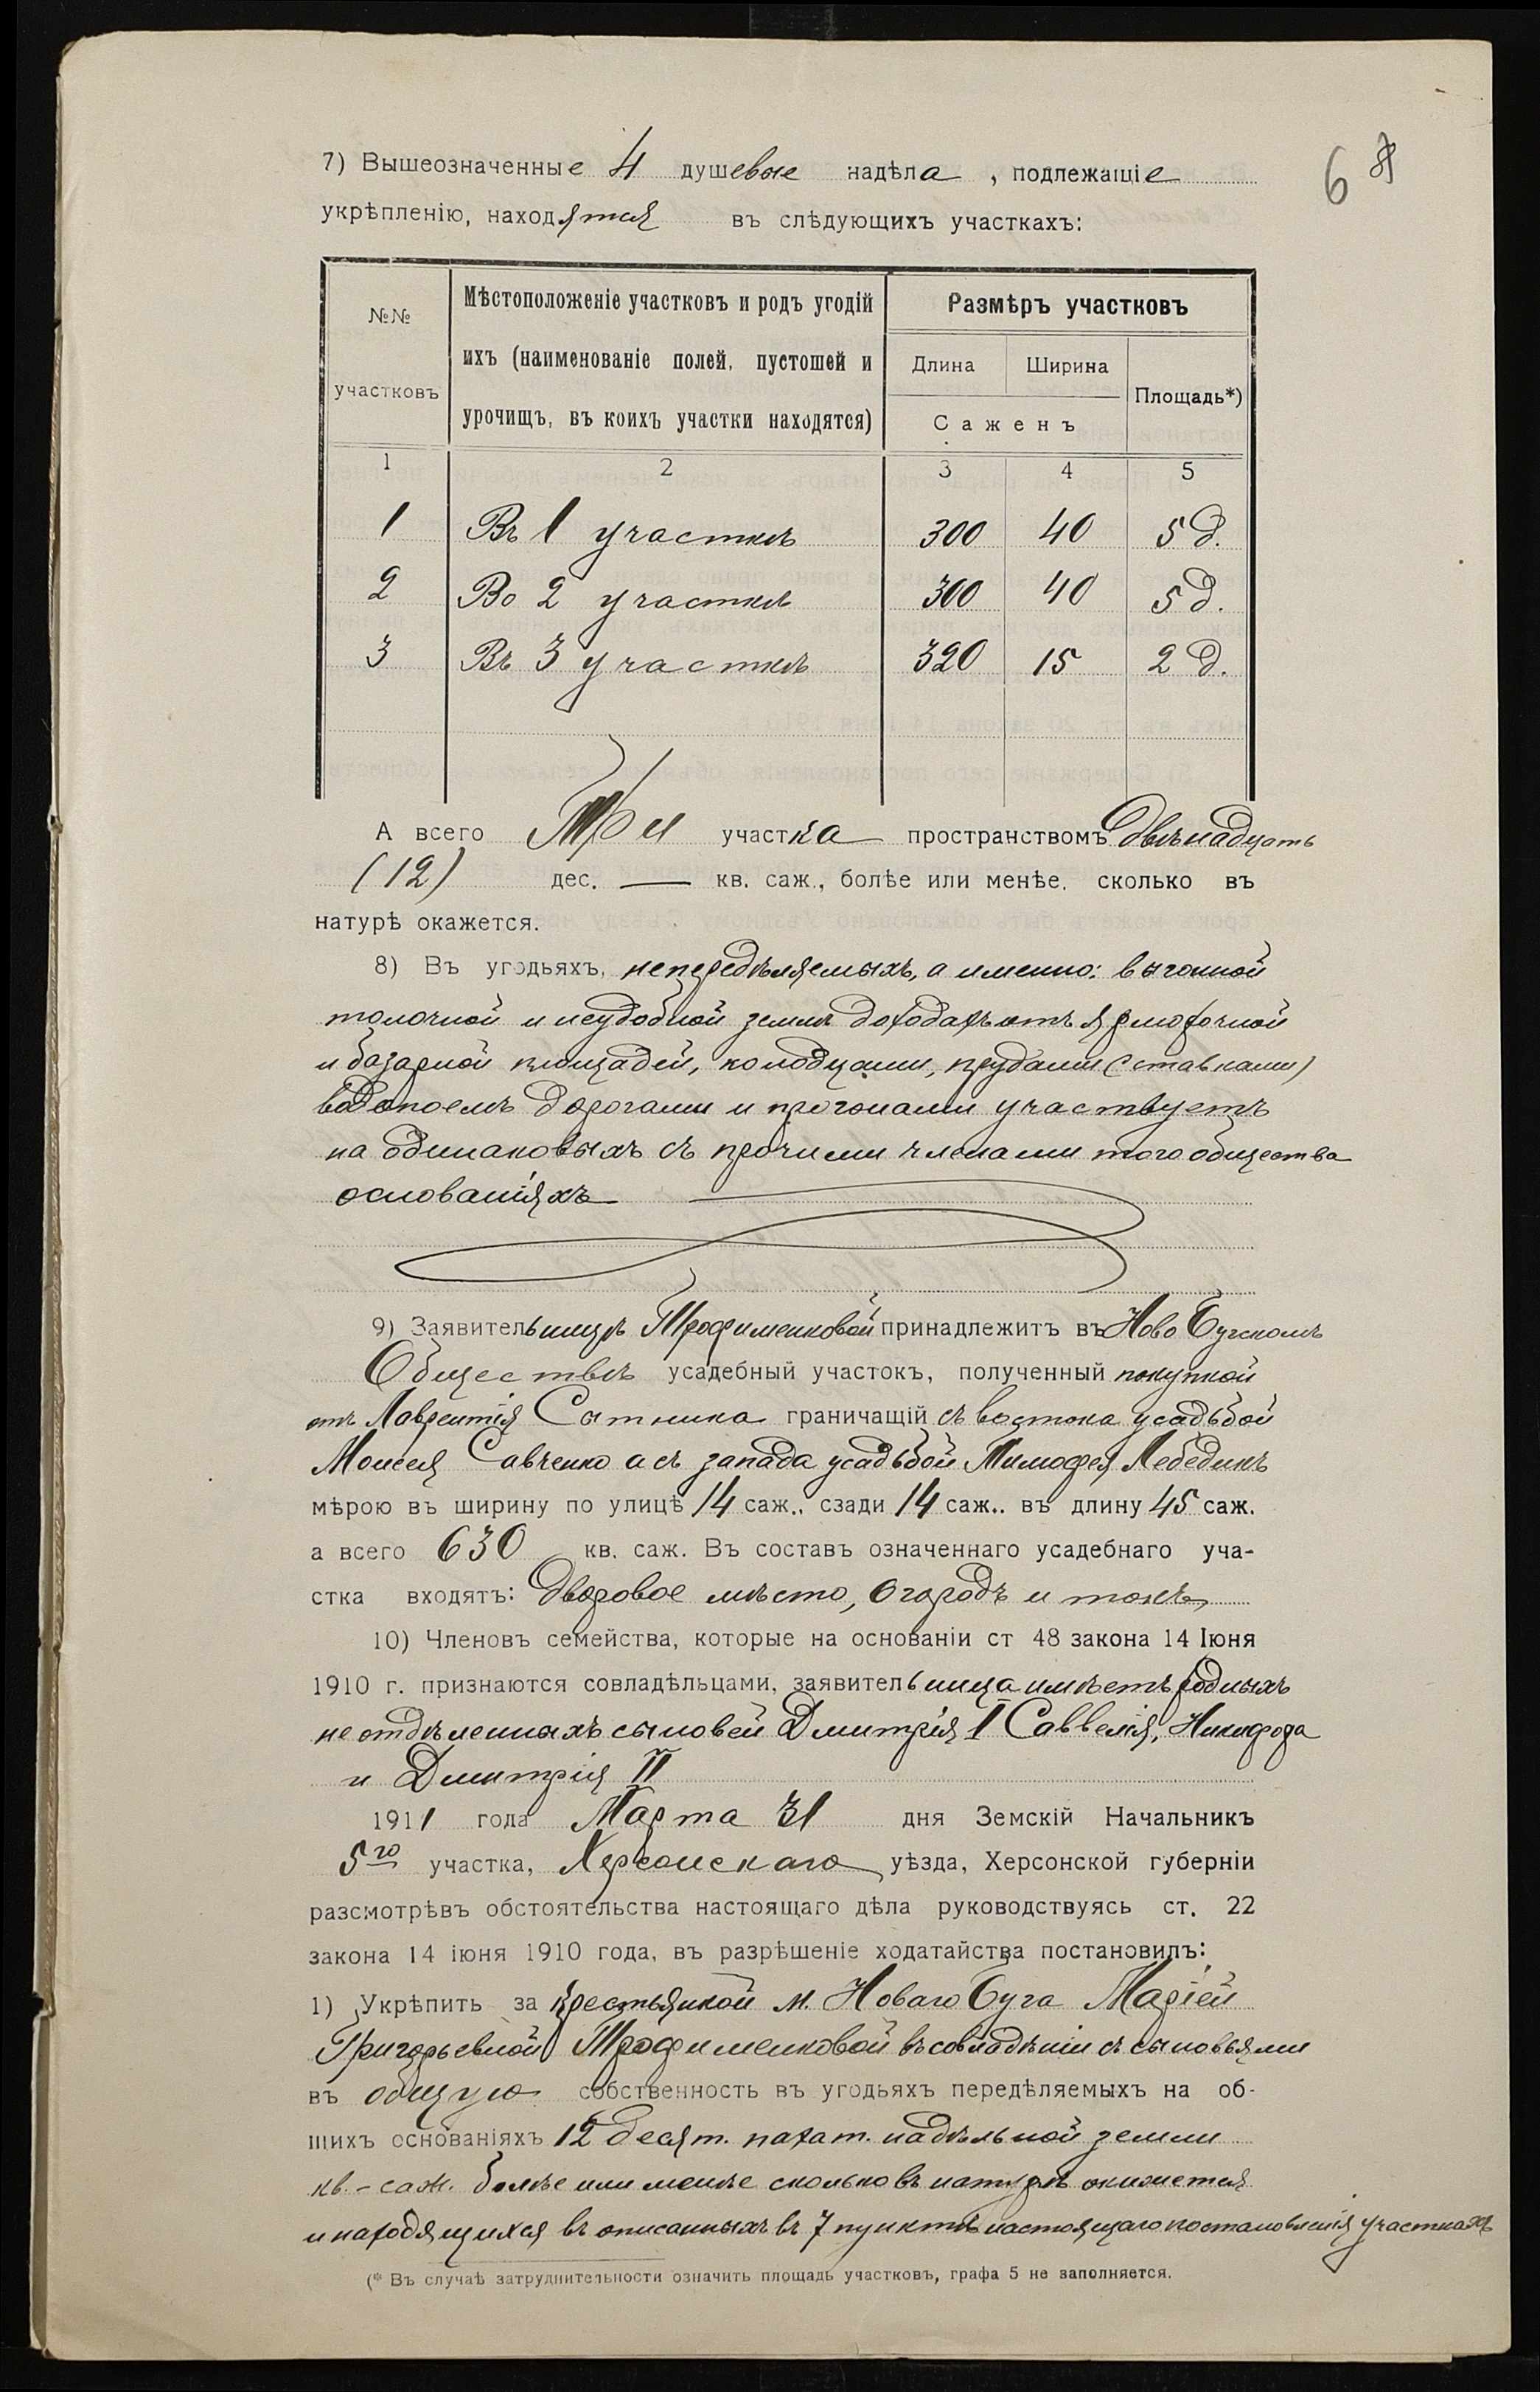 6
7) Вышеозначенные 4 душевые надѣла, подлежащіе
укрѣпленію, находятся въ слѣдующихъ участкахъ:
№№ участковъ
Мѣстоположеніе участковъ и родъ угодій
ихъ (наименованіе полей, пустошей и
урочищъ, въ коихъ участки находятся)
Размѣръ участковъ
Длина Ширина Площадь*)
Саженъ
1 2 3 4 5
1 Въ 1 участкѣ 300 40 5 д.
2 Во 2 участкѣ 300 40 5 д.
3 Въ 3 участкѣ 320 15 2 д.
А всего Три участка пространствомъ Двѣнадцать
(12) дес. — кв. саж., болѣе или менѣе, сколько въ
натурѣ окажется.
8) Въ угодьяхъ, непередѣляемыхъ, а именно: выгонной
толочной и неудобной землѣ доходахъ отъ ярмочной
и базарной площадей, колодцами, прудами (ставками)
водопоемъ дорогами и прогонами участвуетъ
на одинаковыхъ съ прочими членами того общества
основаніяхъ
9) Заявительницѣ Трофименковой принадлежитъ въ Ново Бугскомъ
Обществѣ усадебный участокъ, полученный покупкой
отъ Лаврентія Сытника граничащій съ востока усадьбой
Моисея Савченко а съ запада усадьбой Тимофея Лебединъ
мѣрою въ ширину по улицѣ 14 саж., сзади 14 саж.. въ длину 45 саж.
а всего 630 кв. саж. Въ составъ означеннаго усадебнаго уча-
стка входятъ: Дворовое мѣсто, огородъ и токъ,
10) Членовъ семейства, которые на основаніи ст 48 закона 14 Іюня
1910 г. признаются совладѣльцами, заявительница имѣетъ родныхъ
не отдѣленныхъ сыновей Дмитрія I Саввелія, Никифора
и Дмитрія II
1911 года Марта 31 дня Земскій Начальникъ
5го участка, Херсонскаго уѣзда, Херсонской губерніи
разсмотрѣвъ обстоятельства настоящаго дѣла руководствуясь ст. 22
закона 14 іюня 1910 года, въ разрѣшеніе ходатайства постановилъ:
1) Укрѣпить за крестьянкой м. Новаго Буга Маріей
Григорьевной Трофименковой въ совладѣніи съ сыновьями
въ общую собственность въ угодьяхъ передѣляемыхъ на об-
щихъ основаніяхъ 12 десят. пахат. надѣльной земли
кв. - саж. болѣе или менѣе сколько въ натурѣ окажется
и находящихся въ описанныхъ въ 7 пунктѣ настоящаго постановленія участкахъ
(* Въ случаѣ затруднительности означить площадь участковъ, графа 5 не заполняется.